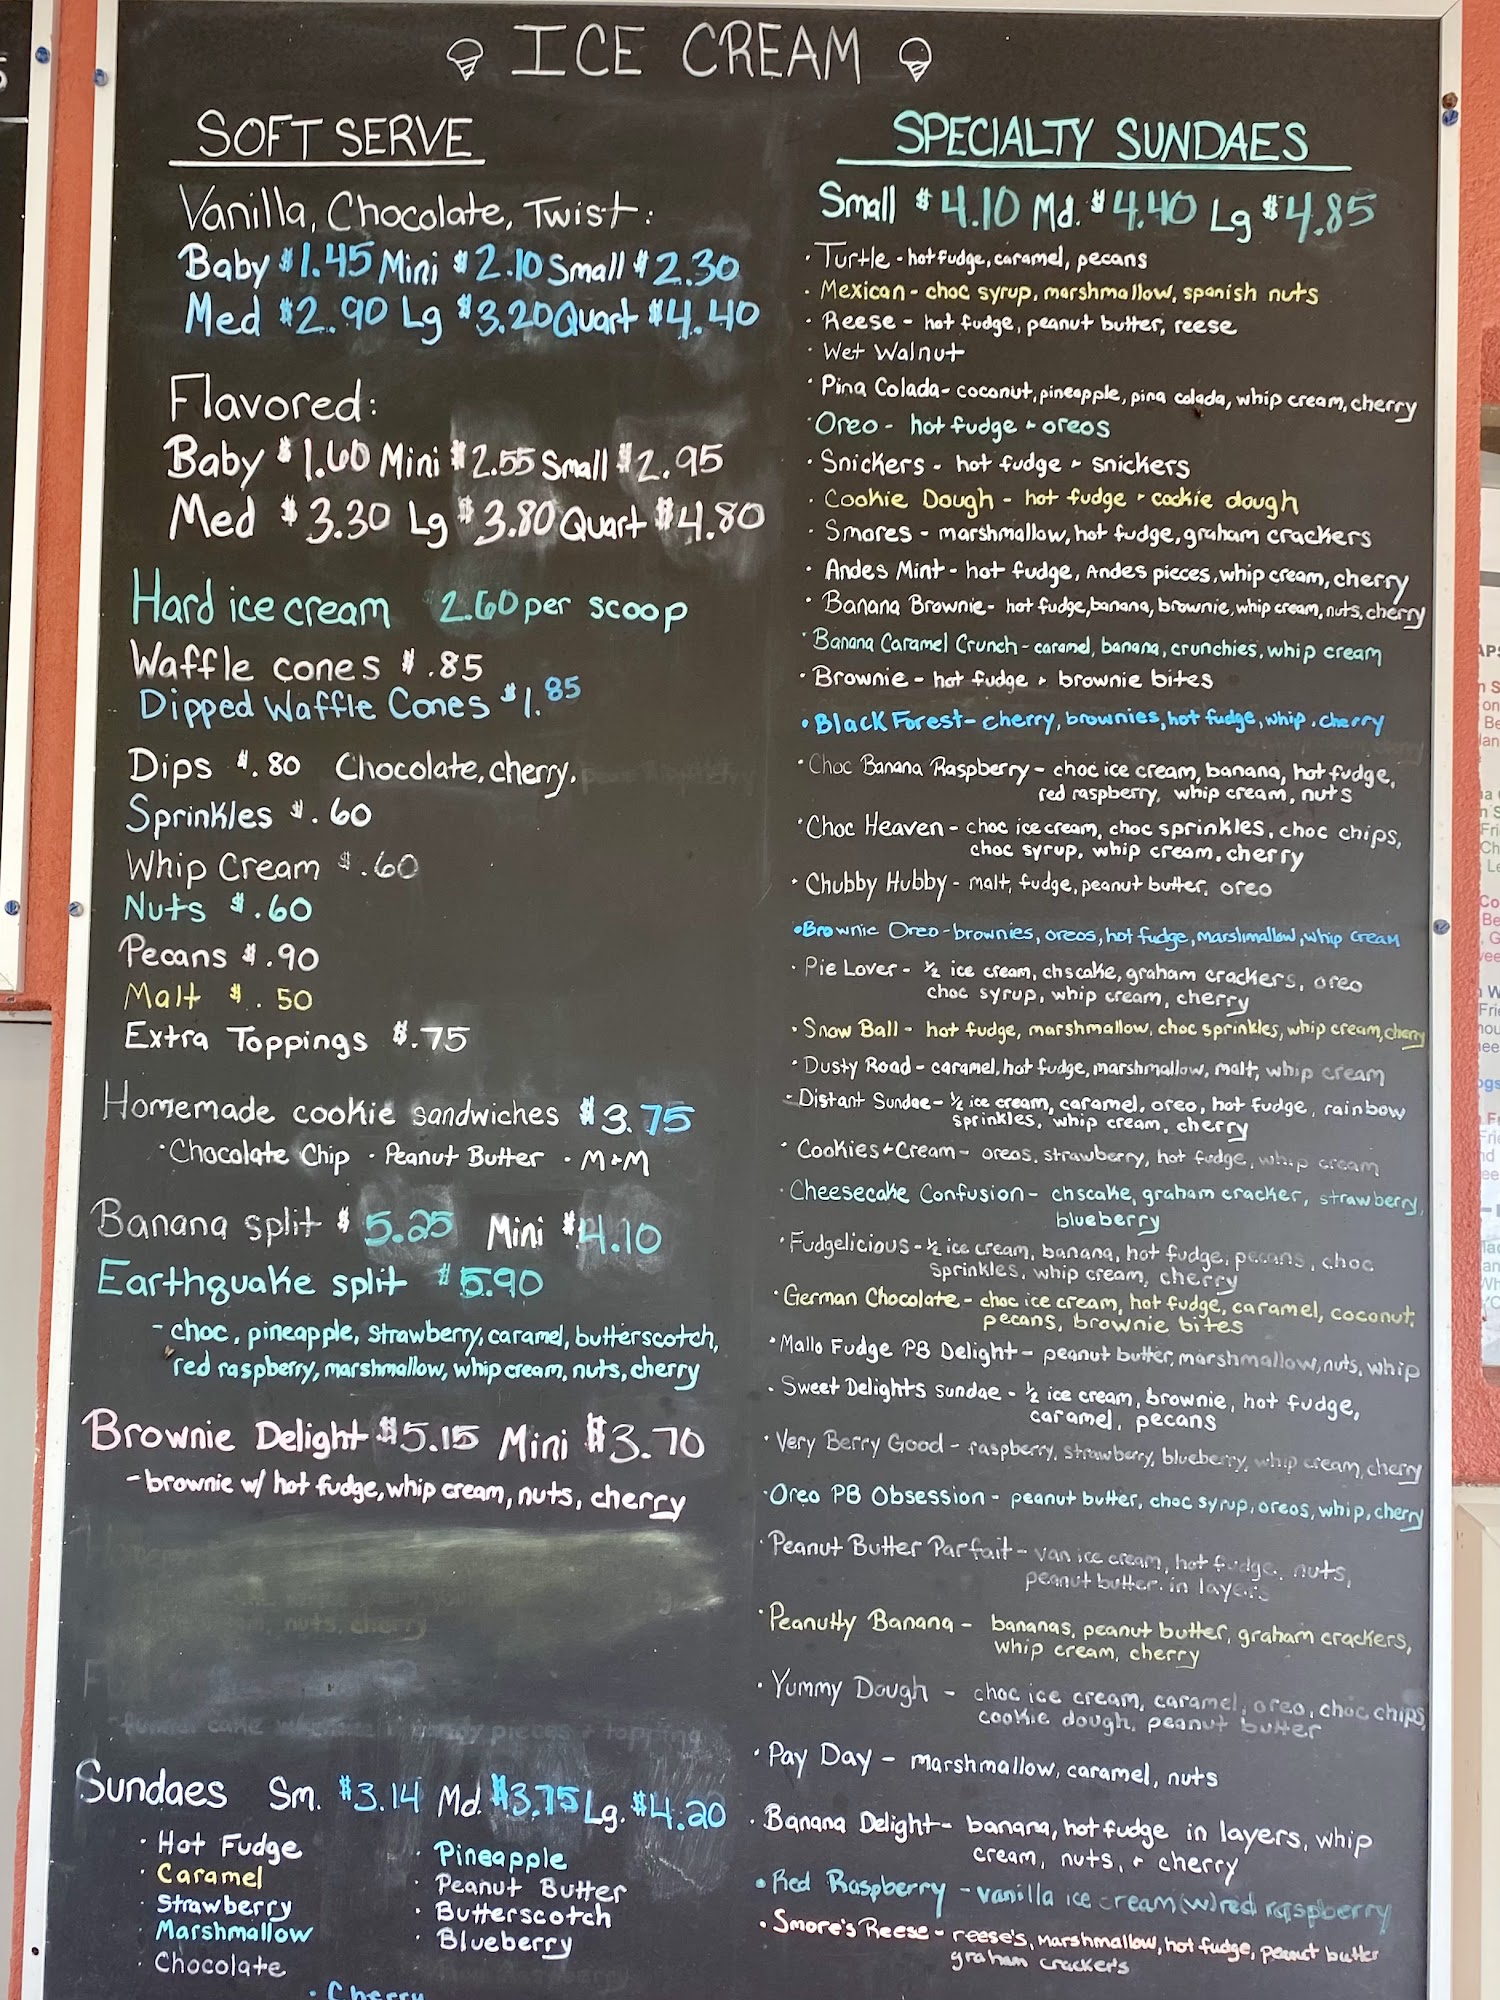 ICE CREAM
SOFT SERVE
Vanilla, Chocolate, Twist:
Baby $1.45 Mini $2.10 Small $2.30
Med $2.90 Lg $3.20 Quart $4.40
Flavored:
Baby $1.60 Mini $2.55 Small $2.95
Med $3.30 Lg $3.80 Quart $4.80
Hard ice cream 2.60 per scoop
Waffle cones $.85
Dipped Waffle Cones $1.85
Dips $.80 Chocolate, cherry,
Sprinkles $.60
Whip Cream $.60
Nuts $.60
Pecans $.90
Malt $.50
Extra Toppings $.75
Homemade cookie sandwiches $3.75
· Chocolate Chip · Peanut Butter · M+M
Banana split $5.25 Mini $4.10
Earthquake split $5.90
- choc, pineapple, strawberry, caramel, butterscotch,
red raspberry, marshmallow, whip cream, nuts, cherry
Brownie Delight $5.15 Mini $3.70
- brownie w/ hot fudge, whip cream, nuts, cherry
Sundaes Sm. $3.14 Md. $3.75 Lg. $4.20
· Hot Fudge
· Caramel
· Strawberry
· Marshmallow
· Chocolate
· Pineapple
· Peanut Butter
· Butterscotch
· Blueberry
· Cherry
SPECIALTY SUNDAES
Small $4.10 Md. $4.40 Lg $4.85
· Turtle - hot fudge, caramel, pecans
· Mexican - choc syrup, marshmallow, spanish nuts
· Reese - hot fudge, peanut butter, reese
· Wet Walnut
· Pina Colada - coconut, pineapple, pina colada, whip cream, cherry
· Oreo - hot fudge + oreos
· Snickers - hot fudge + snickers
· Cookie Dough - hot fudge + cookie dough
· Smores - marshmallow, hot fudge, graham crackers
· Andes Mint - hot fudge, Andes pieces, whip cream, cherry
· Banana Brownie - hot fudge, banana, brownie, whip cream, nuts, cherry
· Banana Caramel Crunch - caramel, banana, crunchies, whip cream
· Brownie - hot fudge + brownie bites
· Black Forest - cherry, brownies, hot fudge, whip, cherry
· Choc Banana Raspberry - choc ice cream, banana, hot fudge,
red raspberry, whip cream, nuts
· Choc Heaven - choc ice cream, choc sprinkles, choc chips,
choc syrup, whip cream, cherry
· Chubby Hubby - malt, fudge, peanut butter, oreo
· Brownie Oreo - brownies, oreos, hot fudge, marshmallow, whip cream
· Pie Lover - ½ ice cream, chscake, graham crackers, oreo
choc syrup, whip cream, cherry
· Snow Ball - hot fudge, marshmallow, choc sprinkles, whip cream, cherry
· Dusty Road - caramel, hot fudge, marshmallow, malt, whip cream
· Distant Sundae - ½ ice cream, caramel, oreo, hot fudge, rainbow
sprinkles, whip cream, cherry
· Cookies + Cream - oreos, strawberry, hot fudge, whip cream
· Cheesecake Confusion - chscake, graham cracker, strawberry,
blueberry
· Fudgelicious - ½ ice cream, banana, hot fudge, pecans, choc
sprinkles, whip cream, cherry
· German Chocolate - choc ice cream, hot fudge, caramel, coconut,
pecans, brownie bites
· Mallo Fudge PB Delight - peanut butter, marshmallow, nuts, whip
· Sweet Delights sundae - ½ ice cream, brownie, hot fudge,
caramel, pecans
· Very Berry Good - raspberry, strawberry, blueberry, whip cream, cherry
· Oreo PB Obsession - peanut butter, choc syrup, oreos, whip, cherry
· Peanut Butter Parfait - van ice cream, hot fudge, nuts,
peanut butter in layers
· Peanutty Banana - bananas, peanut butter, graham crackers,
whip cream, cherry
· Yummy Dough - choc ice cream, caramel, oreo, choc chips,
cookie dough, peanut butter
· Pay Day - marshmallow, caramel, nuts
· Banana Delight - banana, hot fudge in layers, whip
cream, nuts, + cherry
· Red Raspberry - vanilla ice cream (w) red raspberry
· Smore's Reese - reese's, marshmallow, hot fudge, peanut butter
graham cracker's